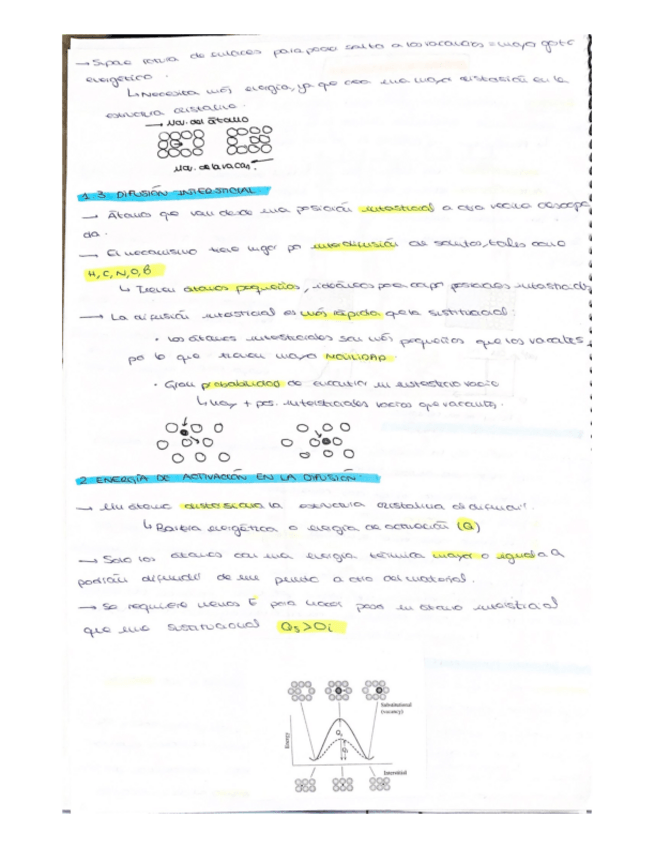 → Supone rotura de enlaces para poder saltar a las vacantes = mayor gasto
energético.
↳ Necesita más energía, ya que crea una mayor distorsión en la
estructura cristalina.
→ Mov. del átomo
Mov. de la vacan.
1.3. DIFUSIÓN INTERSTICIAL.
→ Átomos que van desde una posición intersticial a otra vecina desocupa
da.
→ El mecanismo tiene lugar por interdifusión de solutos, tales como
H, C, N, O, B
↳ Tienen átomos pequeños, idóneos para ocupar posiciones intersticiales
→ La difusión intersticial es más rápida que la sustitucional:
· Los átomos intersticiales son más pequeños que las vacantes,
por lo que tienen mayor MOVILIDAD
· Gran probabilidad de encontrar un intersticio vacío
↳ Hay + pos. intersticiales vacías que vacantes.
2. ENERGÍA DE ACTIVACIÓN EN LA DIFUSIÓN
→ Un átomo distorsiona la estructura cristalina al difundir.
↳ Barrera energética o energía de activación (Q)
→ Solo los átomos con una energía térmica mayor o igual a Q
podrán difundir de un punto a otro del material.
→ Se requiere menos E para hacer pasar un átomo intersticial
que uno sustitucional Qs>Qi
Substitutional
(vacancy)
Energy
Interstitial